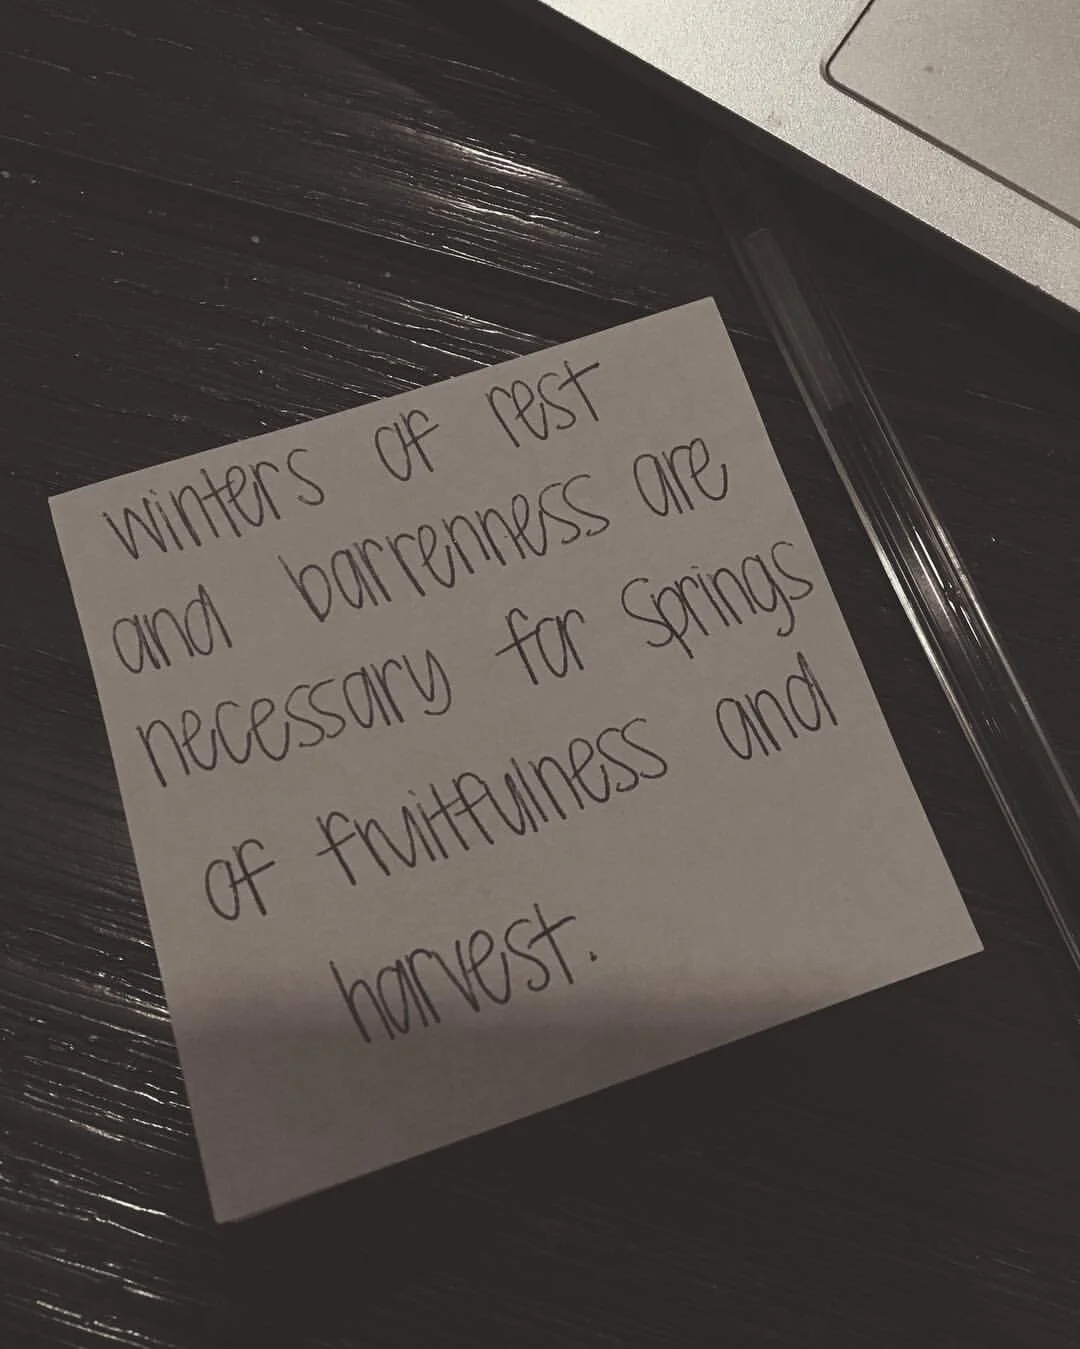 winters of rest
and barrenness are
necessary for springs
of fruitfulness and
harvest.